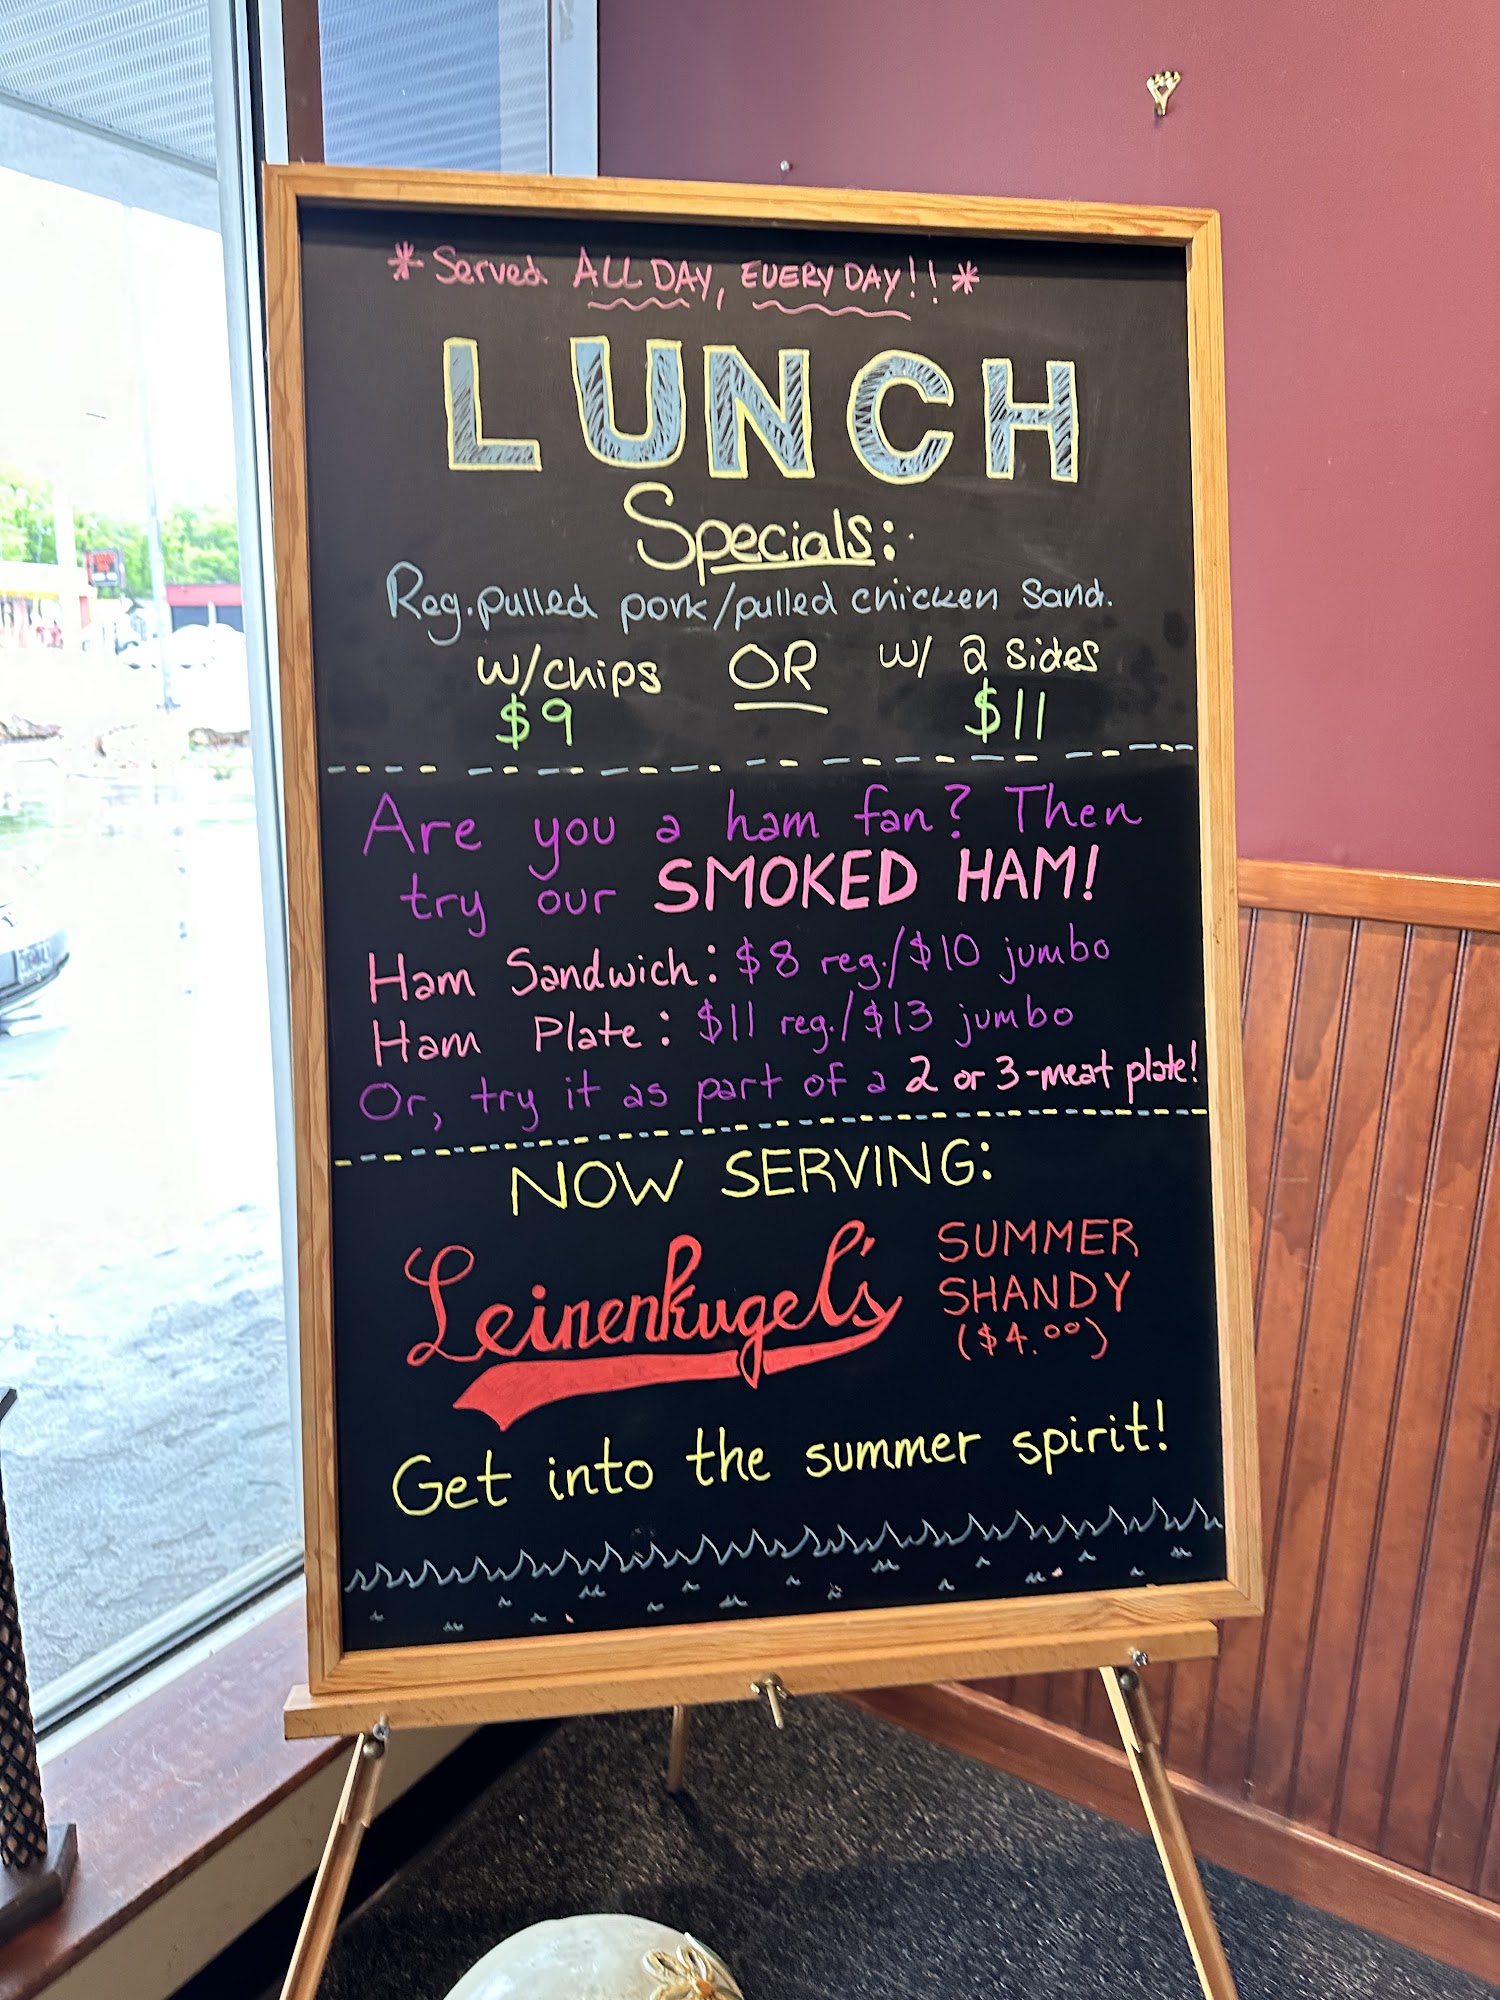 *Served ALL DAY, EVERY DAY!!*
LUNCH
Specials:
Reg. pulled pork/pulled chicken Sand.
w/chips OR w/ 2 sides
$9 $11
Are you a ham fan? Then
try our SMOKED HAM!
Ham Sandwich: $8 reg./$10 jumbo
Ham Plate: $11 reg./$13 jumbo
Or, try it as part of a 2 or 3-meat plate!
NOW SERVING:
Leinenkugel's
SUMMER
SHANDY
($4.00)
Get into the summer spirit!